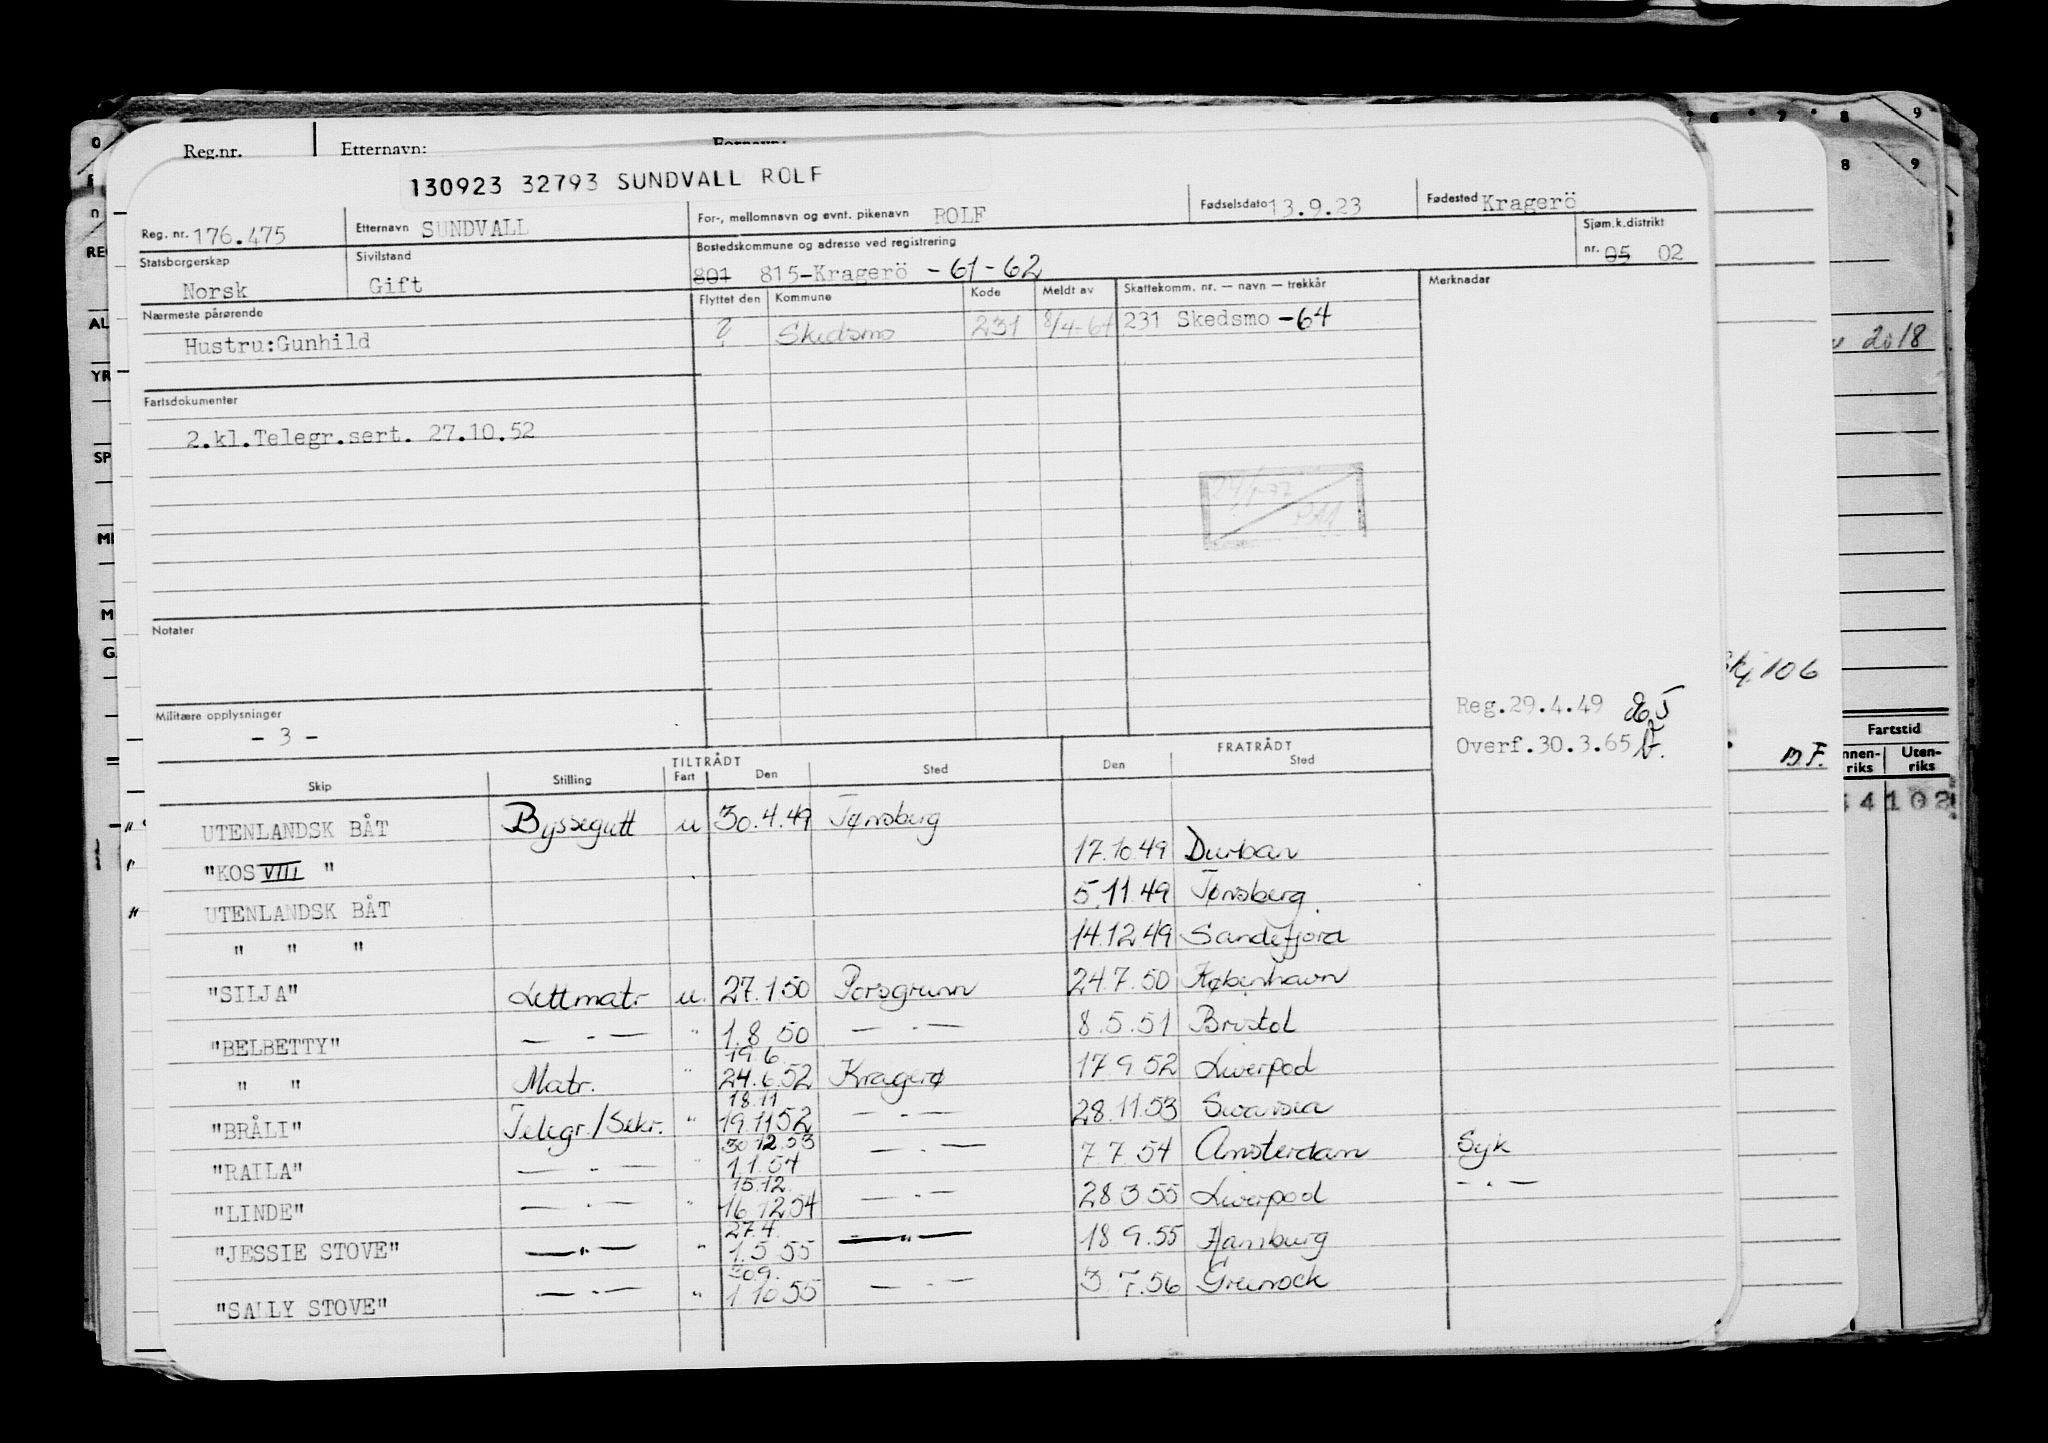 Reg.nr. Etternavn: Fornavn:
130923 32793 SUNDVALL ROLF
Reg. nr. 176.475 Etternavn SUNDVALL For-, mellomnavn og evnt. pikenavn ROLF Fødselsdato 13.9.23 Fødested Kragerö
Statsborgerskap Norsk Sivilstand Gift Bostedskommune og adresse ved registrering 801 815-Kragerö -61-62 Sjøm.k.distrikt nr. 05 02
Nærmeste pårørende Flyttet den Kommune Kode Meldt av Skattekomm. nr. — navn — trekkår Merknader
Hustru:Gunhild ? Skedsmo 231 8/4-64 231 Skedsmo -64
Fartsdokumenter
2.kl.Telegr.sert. 27.10.52
Notater
Militære opplysninger
- 3 -
Reg.29.4.49
Overf.30.3.65
TILTRÅDT FRATRÅDT
Skip Stilling Fart Den Sted Den Sted
UTENLANDSK BÅT Byssegutt u 30.4.49 Tønsberg
"KOS VIII " 17.10.49 Durban
UTENLANDSK BÅT 5.11.49 Tønsberg
" " " 14.12.49 Sandefjord
"SILJA" Lettmatr u. 27.1.50 Porsgrunn 24.7.50 København
"BELBETTY" — . — " 1.8.50 — . — 8.5.51 Bristol
" " Matr. " 19.6. 24.6.52 Kragerø 17.9.52 Liverpool
"BRÅLI" Telegr./Sekr. " 18.11 19.11.52 — . — 28.11.53 Swansea
"RAILA" — . — " 30.12.53 1.1.54 — . — 7.7.54 Amsterdam Syk
"LINDE" — . — " 15.12. 16.12.54 — . — 28.3.55 Liverpool — . —
"JESSIE STOVE" — " — " 27.4. 1.5.55 — " — 18.9.55 Hamburg
"SALLY STOVE" — . — " 30.9. 1.10.55 — . — 3.7.56 Greenock
6 7 8 9
8 9
2018
106
Fartstid
Uten-
riks
B.F.
4102